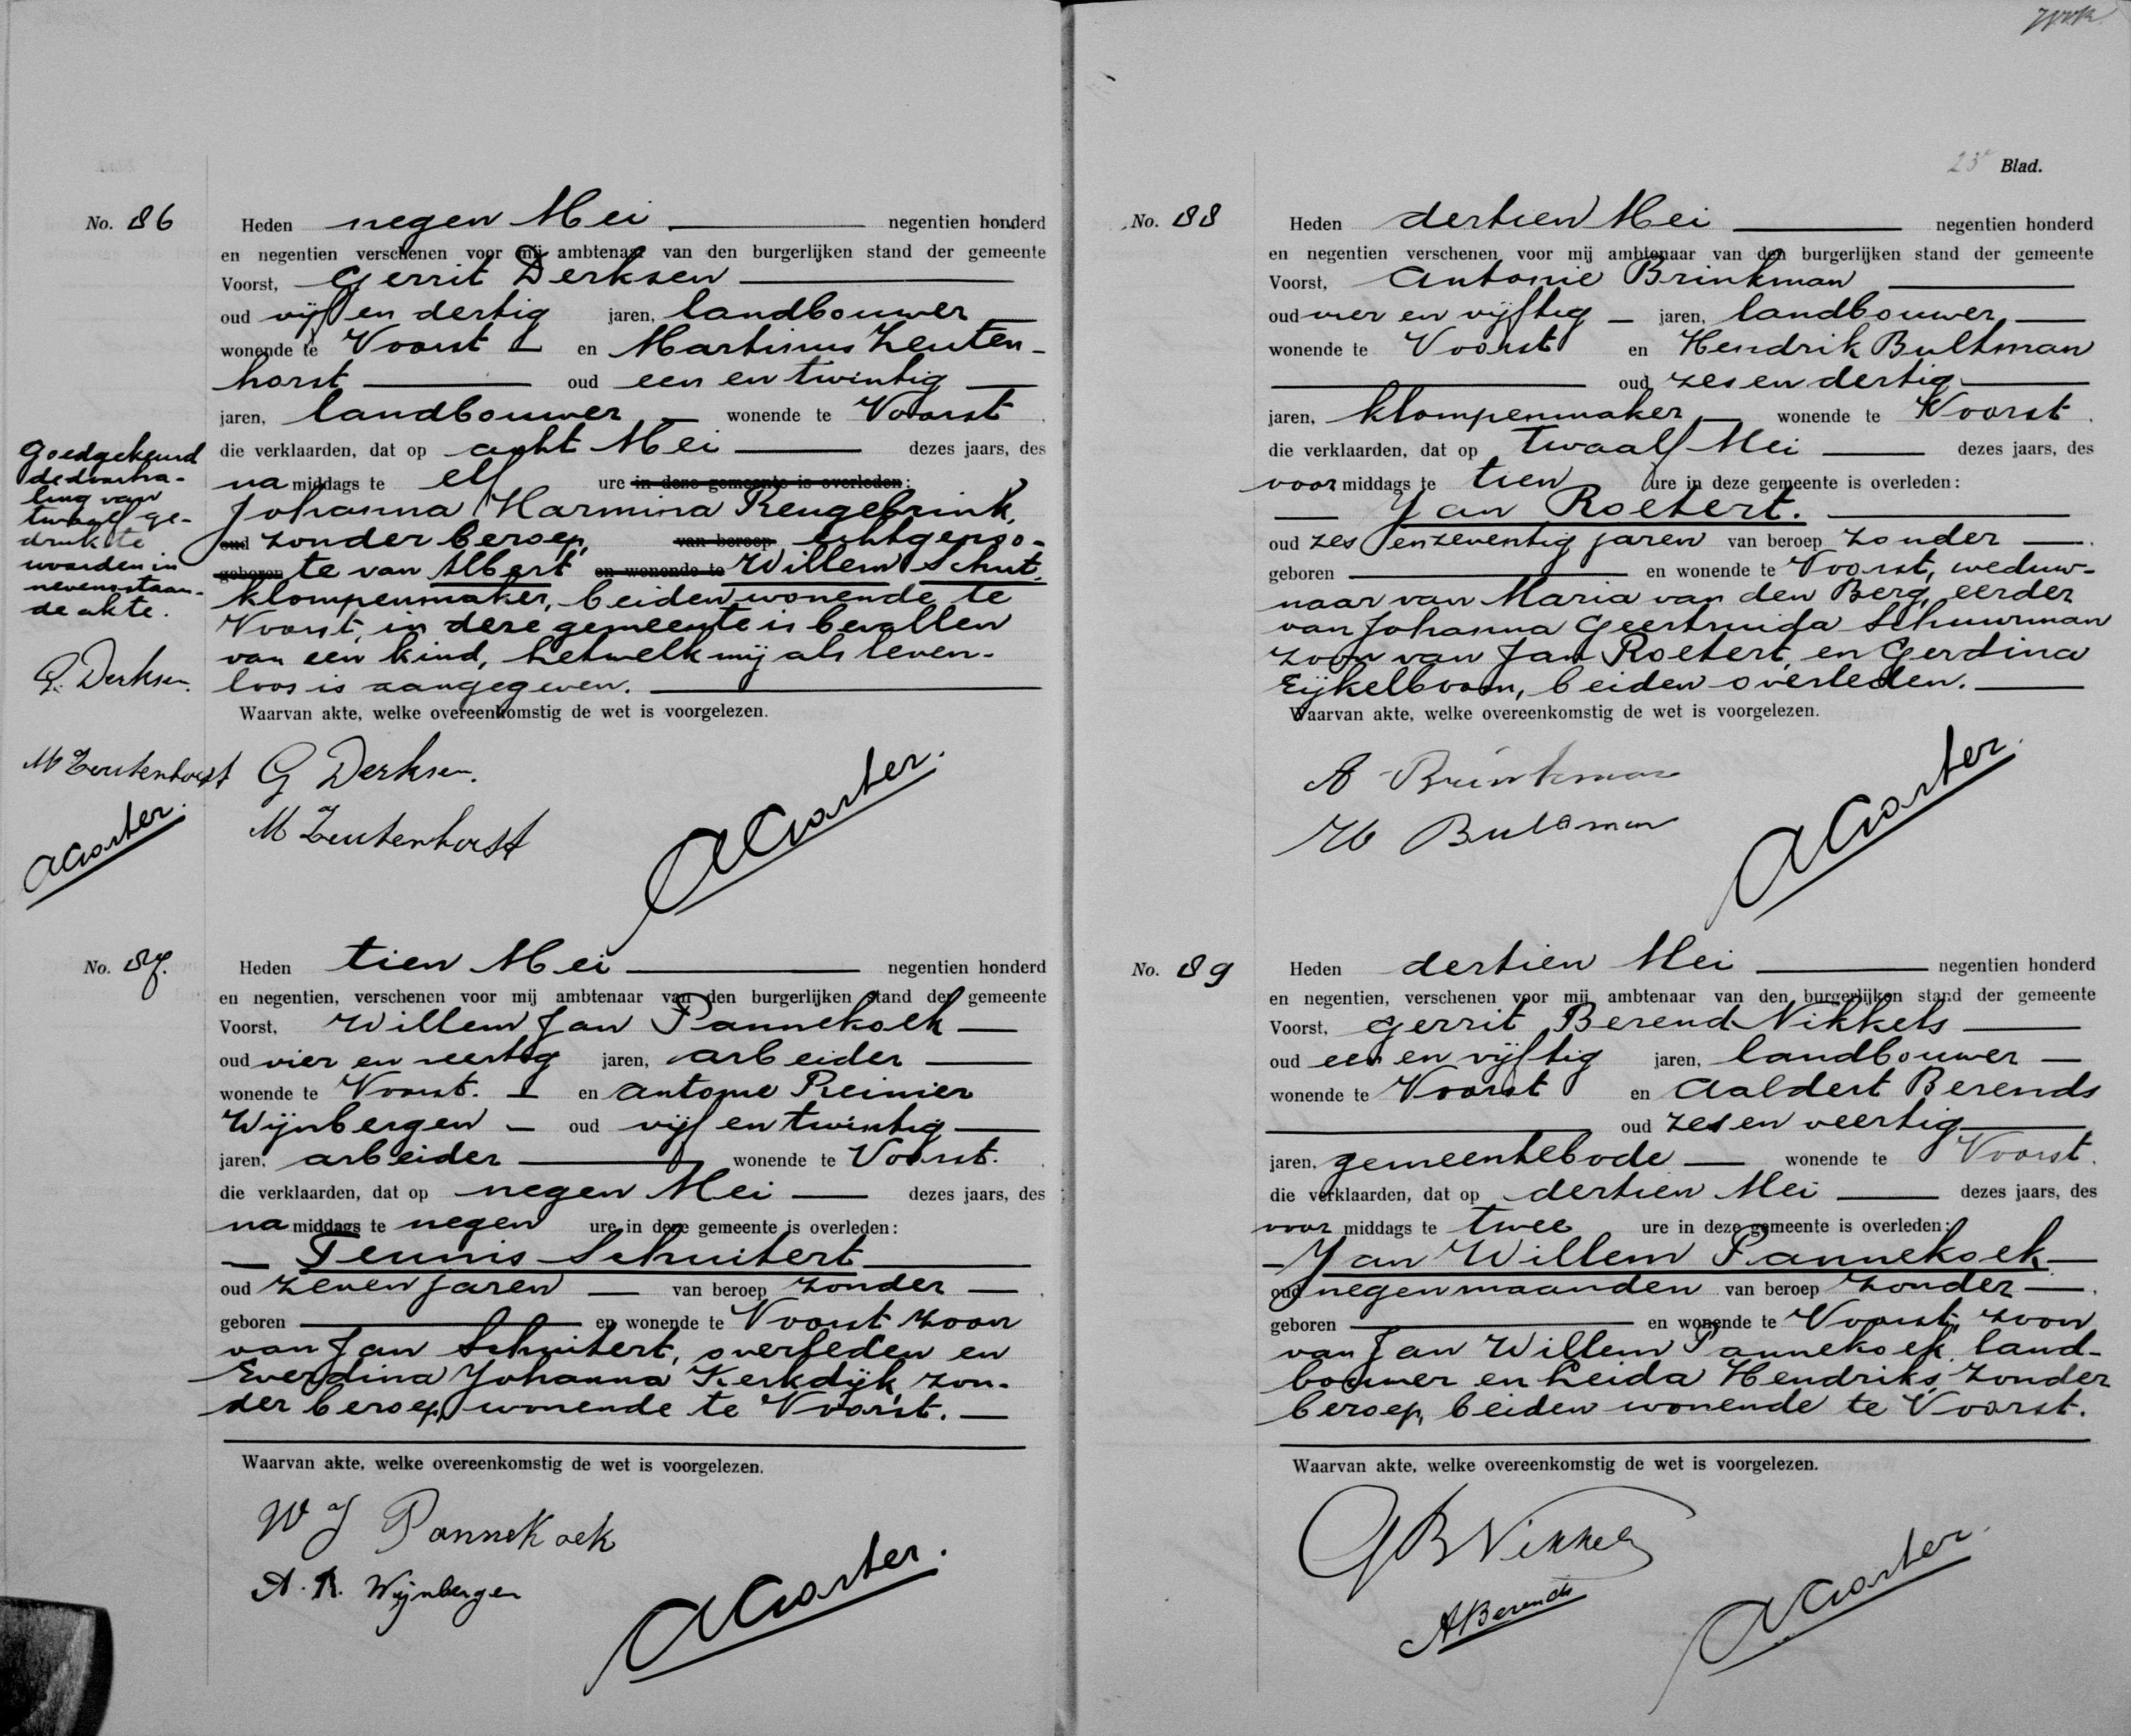 No. 86
Heden negen Mei negentien honderd
en negentien verschenen voor mij ambtenaar van den burgerlijken stand der gemeente
Voorst, Gerrit Derksen
oud vijf en dertig jaren, landbouwer
wonende te Voorst en Martinus Zeuten-
horst oud een en twintig
jaren, landbouwer wonende te Voorst.
die verklaarden, dat op acht Mei dezes jaars, des
na middags te elf ure in deze gemeente is overleden:
Johanna Harmina Reugebrink,
oud zonder beroep, van beroep echtgenoo-
geboren te van Albert en wonende te Willem Schut,
klompenmaker, beiden wonende te
Voorst, in deze gemeente is bevallen
van een kind, hetwelk mij als leven-
loos is aangegeven.
Waarvan akte, welke overeenkomstig de wet is voorgelezen.
Goedgekeurd
de doorha-
ling van
twaalf ge-
drukte
woorden in
nevenstaan-
de akte.
G. Derksen.
M Zeutenhorst
G Derksen.
M Zeutenhorst
No. 87.
Heden tien Mei negentien honderd
en negentien, verschenen voor mij ambtenaar van den burgerlijken stand der gemeente
Voorst, Willem Jan Pannekoek
oud vier en veertig jaren, arbeider
wonende te Voorst. en Antonie Reinier
Wijnbergen oud vijf en twintig
jaren, arbeider wonende te Voorst.
die verklaarden, dat op negen Mei dezes jaars, des
na middags te negen ure in deze gemeente is overleden:
Teunis Schuitert
oud zeven jaren van beroep zonder
geboren en wonende te Voorst zoon
van Jan Schuitert, overleden en
Everdina Johanna Kerkdijk, zon-
der beroep, wonende te Voorst.
Waarvan akte, welke overeenkomstig de wet is voorgelezen.
W J Pannekoek
A. R. Wijnbergen
23e Blad.
No. 88
Heden dertien Mei negentien honderd
en negentien verschenen voor mij ambtenaar van den burgerlijken stand der gemeente
Voorst, Antonie Brinkman
oud vier en vijftig jaren, landbouwer
wonende te Voorst en Hendrik Bultman
oud zes en dertig
jaren, klompenmaker wonende te Voorst.
die verklaarden, dat op twaalf Mei dezes jaars, des
voor middags te tien ure in deze gemeente is overleden:
Jan Roetert.
oud zes en zeventig jaren van beroep zonder
geboren en wonende te Voorst, weduw-
naar van Maria van den Berg, eerder
van Johanna Geertruida Schuurman
zoon van Jan Roetert, en Gerdina
Eijkelboom, beiden overleden.
Waarvan akte, welke overeenkomstig de wet is voorgelezen.
A Brinkman
H Bultman
No. 89
Heden dertien Mei negentien honderd
en negentien, verschenen voor mij ambtenaar van den burgerlijken stand der gemeente
Voorst, Gerrit Berend Nikkels
oud een en vijftig jaren, landbouwer
wonende te Voorst en Aaldert Berends
oud zes en veertig
jaren, gemeentebode wonende te Voorst.
die verklaarden, dat op dertien Mei dezes jaars, des
voor middags te twee ure in deze gemeente is overleden:
Jan Willem Pannekoek
oud negen maanden van beroep zonder
geboren en wonende te Voorst, zoon
van Jan Willem Pannekoek, land-
bouwer en Leida Hendriks, zonder
beroep, beiden wonende te Voorst.
Waarvan akte, welke overeenkomstig de wet is voorgelezen.
G B Nikkels
A Berends